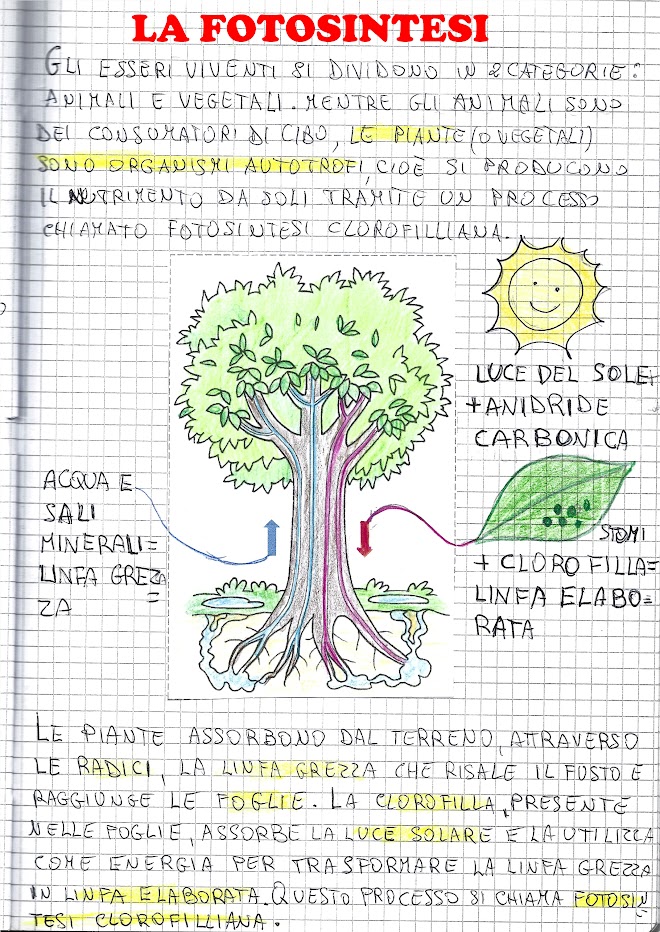 LA FOTOSINTESI
GLI ESSERI VIVENTI SI DIVIDONO IN 2 CATEGORIE:
ANIMALI E VEGETALI. MENTRE GLI ANIMALI SONO
DEI CONSUMATORI DI CIBO, LE PIANTE (O VEGETALI)
SONO ORGANISMI AUTOTROFI, CIOÈ SI PRODUCONO
IL NUTRIMENTO DA SOLI TRAMITE UN PROCESSO
CHIAMATO FOTOSINTESI CLOROFILLIANA.
LUCE DEL SOLE+
+ANIDRIDE
CARBONICA
ACQUA E
SALI
MINERALI=
LINFA GREZ
ZA
STOMI
+ CLOROFILLA=
LINFA ELABO=
RATA
LE PIANTE ASSORBONO DAL TERRENO, ATTRAVERSO
LE RADICI, LA LINFA GREZZA CHE RISALE IL FUSTO E
RAGGIUNGE LE FOGLIE. LA CLOROFILLA, PRESENTE
NELLE FOGLIE, ASSORBE LA LUCE SOLARE E LA UTILIZZA
COME ENERGIA PER TRASFORMARE LA LINFA GREZZA
IN LINFA ELABORATA. QUESTO PROCESSO SI CHIAMA FOTOSIN=
TESI CLOROFILLIANA.